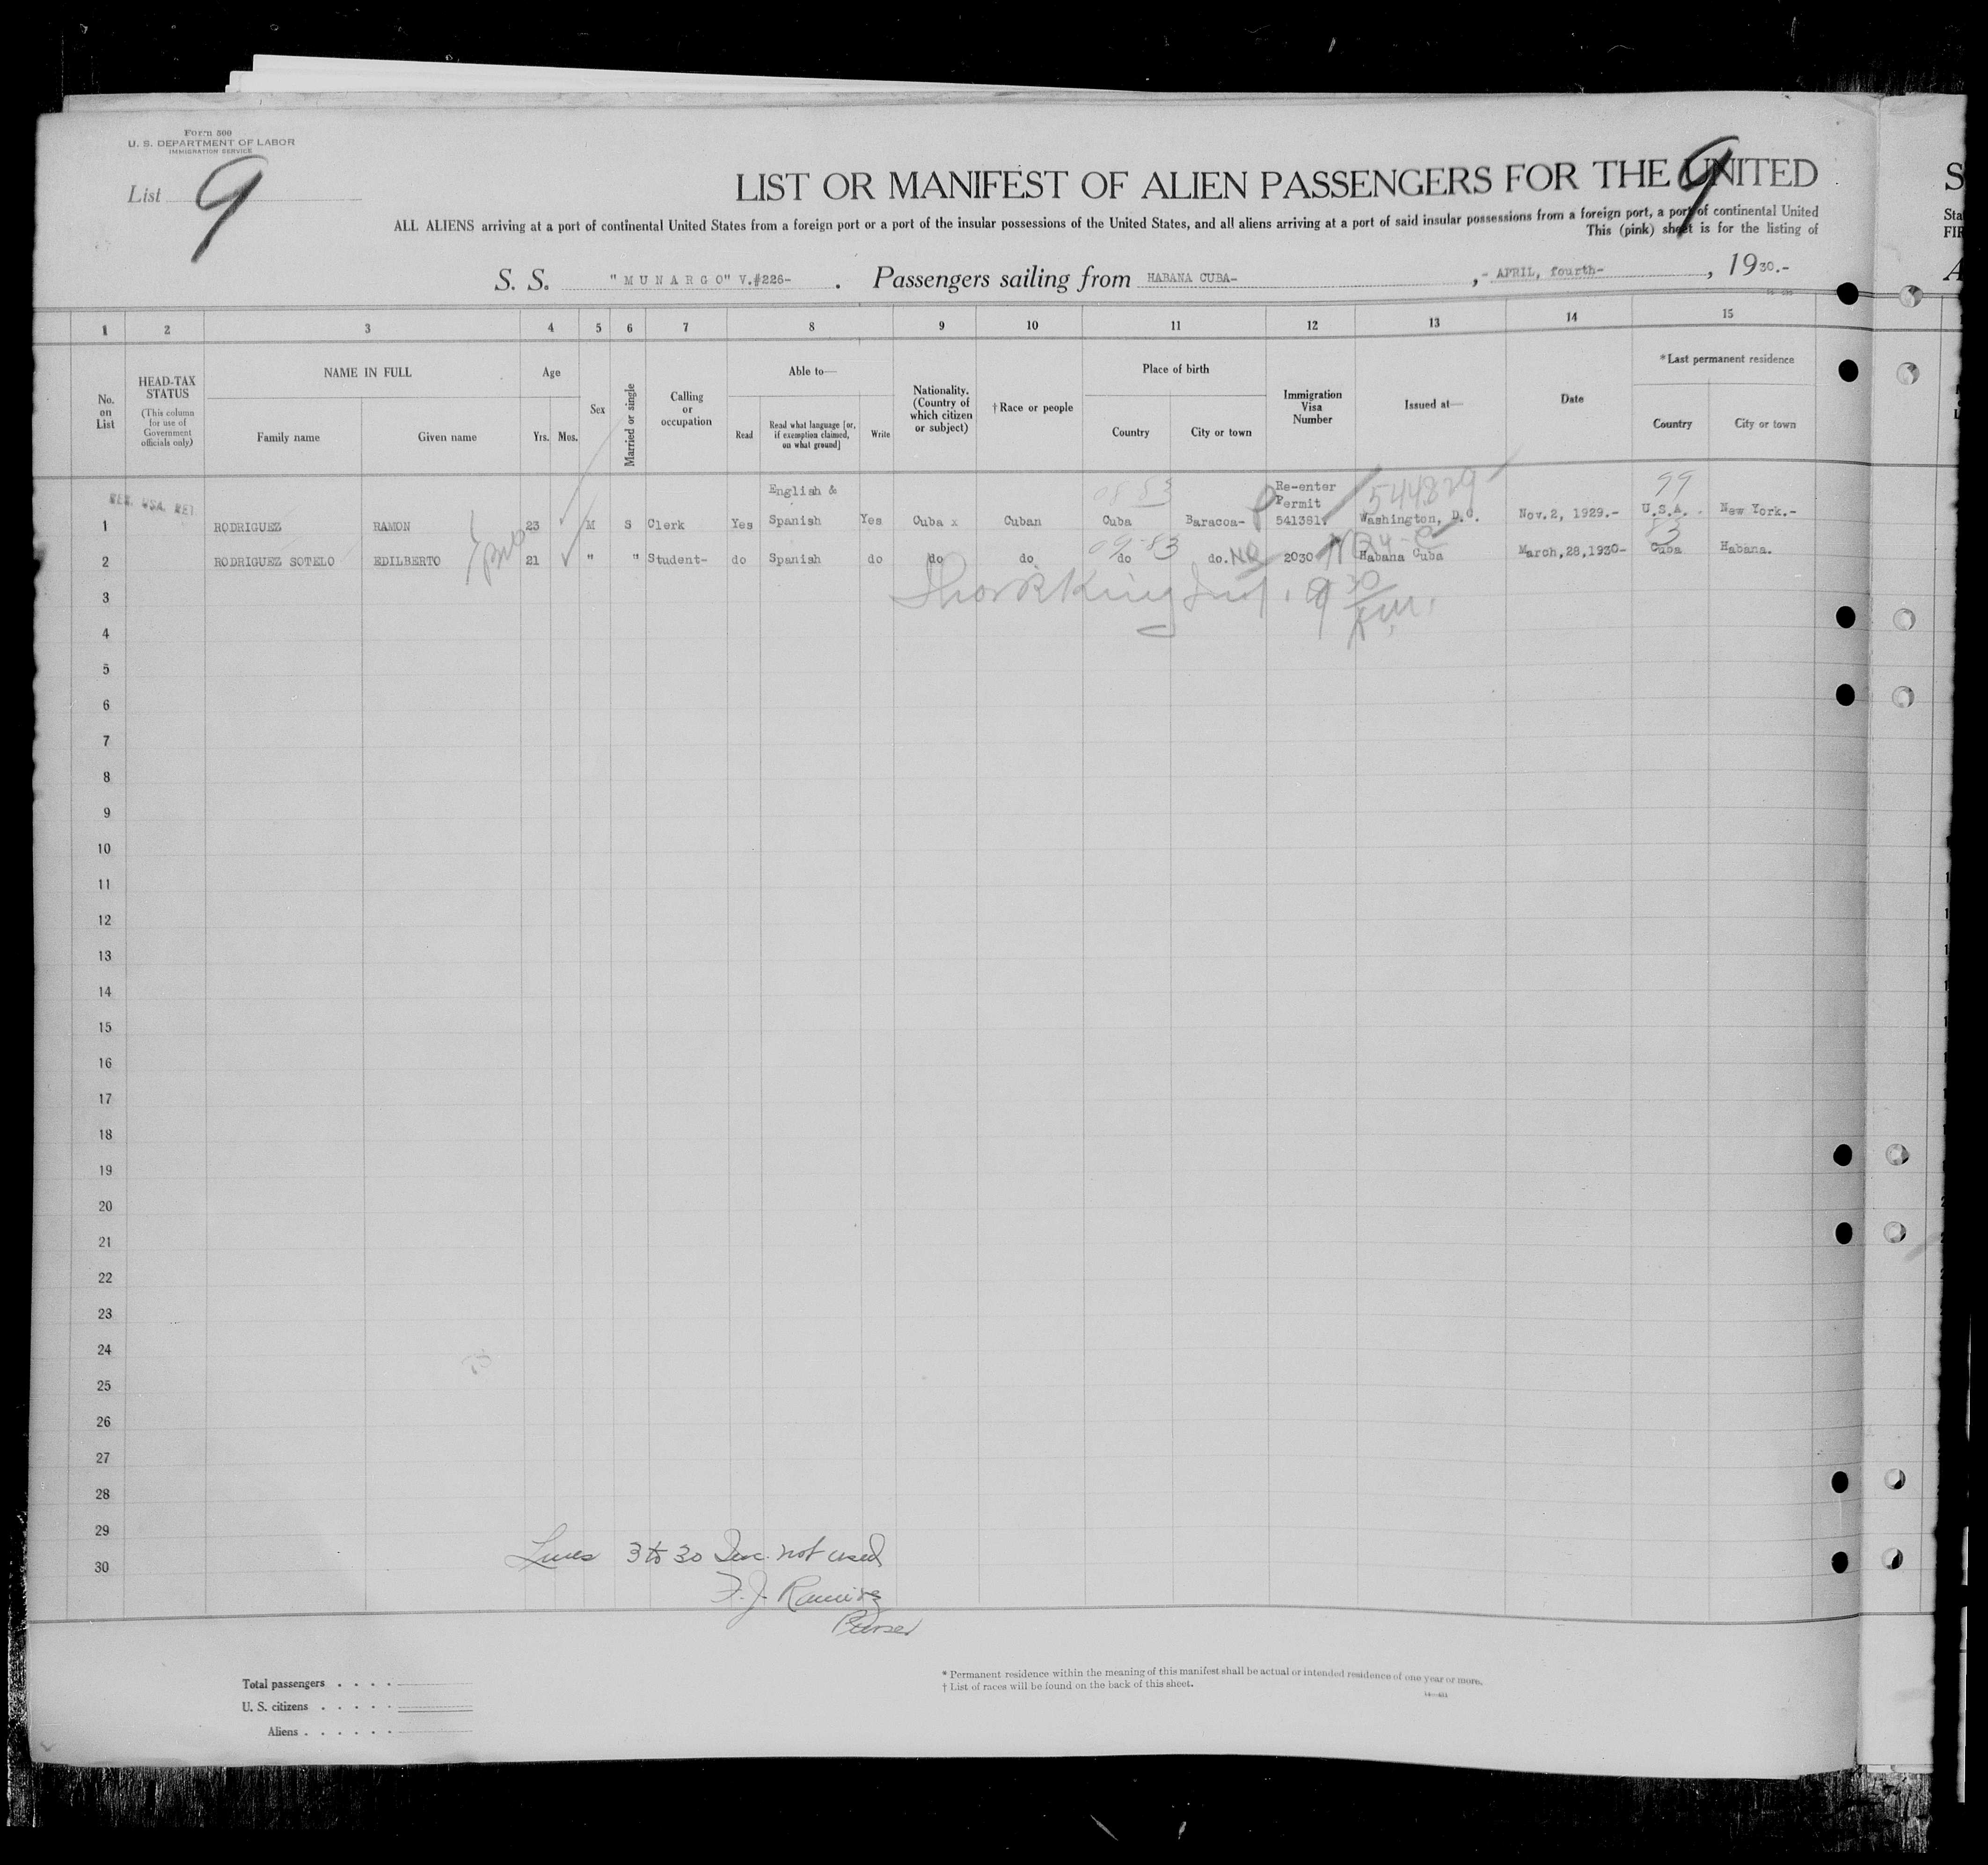 Form 500
U. S. DEPARTMENT OF LABOR
IMMIGRATION SERVICE
List 9
9
LIST OR MANIFEST OF ALIEN PASSENGERS FOR THE UNITED
ALL ALIENS arriving at a port of continental United States from a foreign port or a port of the insular possessions of the United States, and all aliens arriving at a port of said insular possessions from a foreign port, a port of continental United
This (pink) sheet is for the listing of
S. S. "MUNARGO" V.#226- . Passengers sailing from HABANA CUBA- , - APRIL, fourth- , 1930.-
1 2 3 4 5 6 7 8 9 10 11 12 13 14 15
No. on List
HEAD-TAX STATUS
(This column for use of Government officials only)
NAME IN FULL
Family name
Given name
Age
Yrs. Mos.
Sex
Married or single
Calling or occupation
Able to—
Read
Read what language [or, if exemption claimed, on what ground]
Write
Nationality. (Country of which citizen or subject)
† Race or people
Place of birth
Country
City or town
Immigration Visa Number
Issued at—
Date
*Last permanent residence
Country
City or town
English & Re-enter 544829 99
Permit
1 RODRIGUEZ RAMON 23 M S Clerk Yes Spanish Yes Cuba x Cuban Cuba Baracoa- 541381. Washington, D.C. Nov.2, 1929.- U.S.A. New York.-
09-83 83
2 RODRIGUEZ SOTELO EDILBERTO 21 " " Student- do Spanish do do do do do. 2030 Habana Cuba March,28,1930- Cuba Habana.
3
4
5
6
7
8
9
10
11
12
13
14
15
16
17
18
19
20
21
22
23
24
25
26
27
28
29
30
Lines 3 to 30 Inc. not used
F. J. Ramirez
Purser
Total passengers . . . .
U. S. citizens . . . . .
Aliens . . . . . .
* Permanent residence within the meaning of this manifest shall be actual or intended residence of one year or more.
† List of races will be found on the back of this sheet.